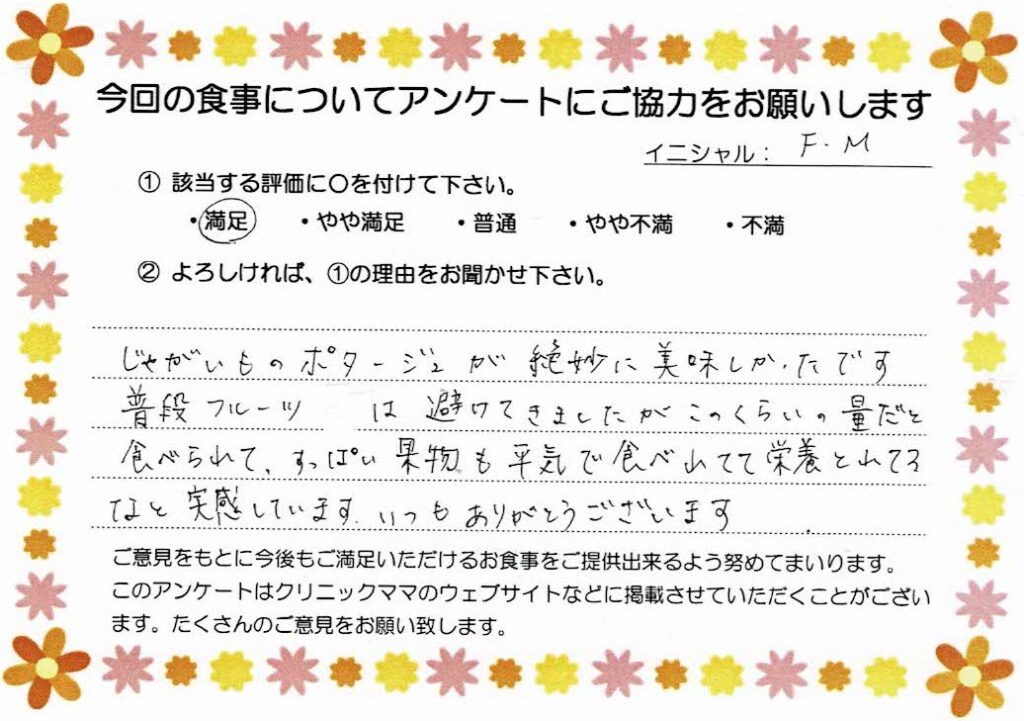 今回の食事についてアンケートにご協力をお願いします
イニシャル： F.M
① 該当する評価に〇を付けて下さい。
・満足 ・やや満足 ・普通 ・やや不満 ・不満
② よろしければ、①の理由をお聞かせ下さい。
じゃがいものポタージュが絶妙に美味しかったです
普段フルーツ は避けてきましたがこのくらいの量だと
食べられて、すっぱい果物も平気で食べれてて栄養とれてる
なと実感しています。いつもありがとうございます
ご意見をもとに今後もご満足いただけるお食事をご提供出来るよう努めてまいります。
このアンケートはクリニックママのウェブサイトなどに掲載させていただくことがござい
ます。たくさんのご意見をお願い致します。